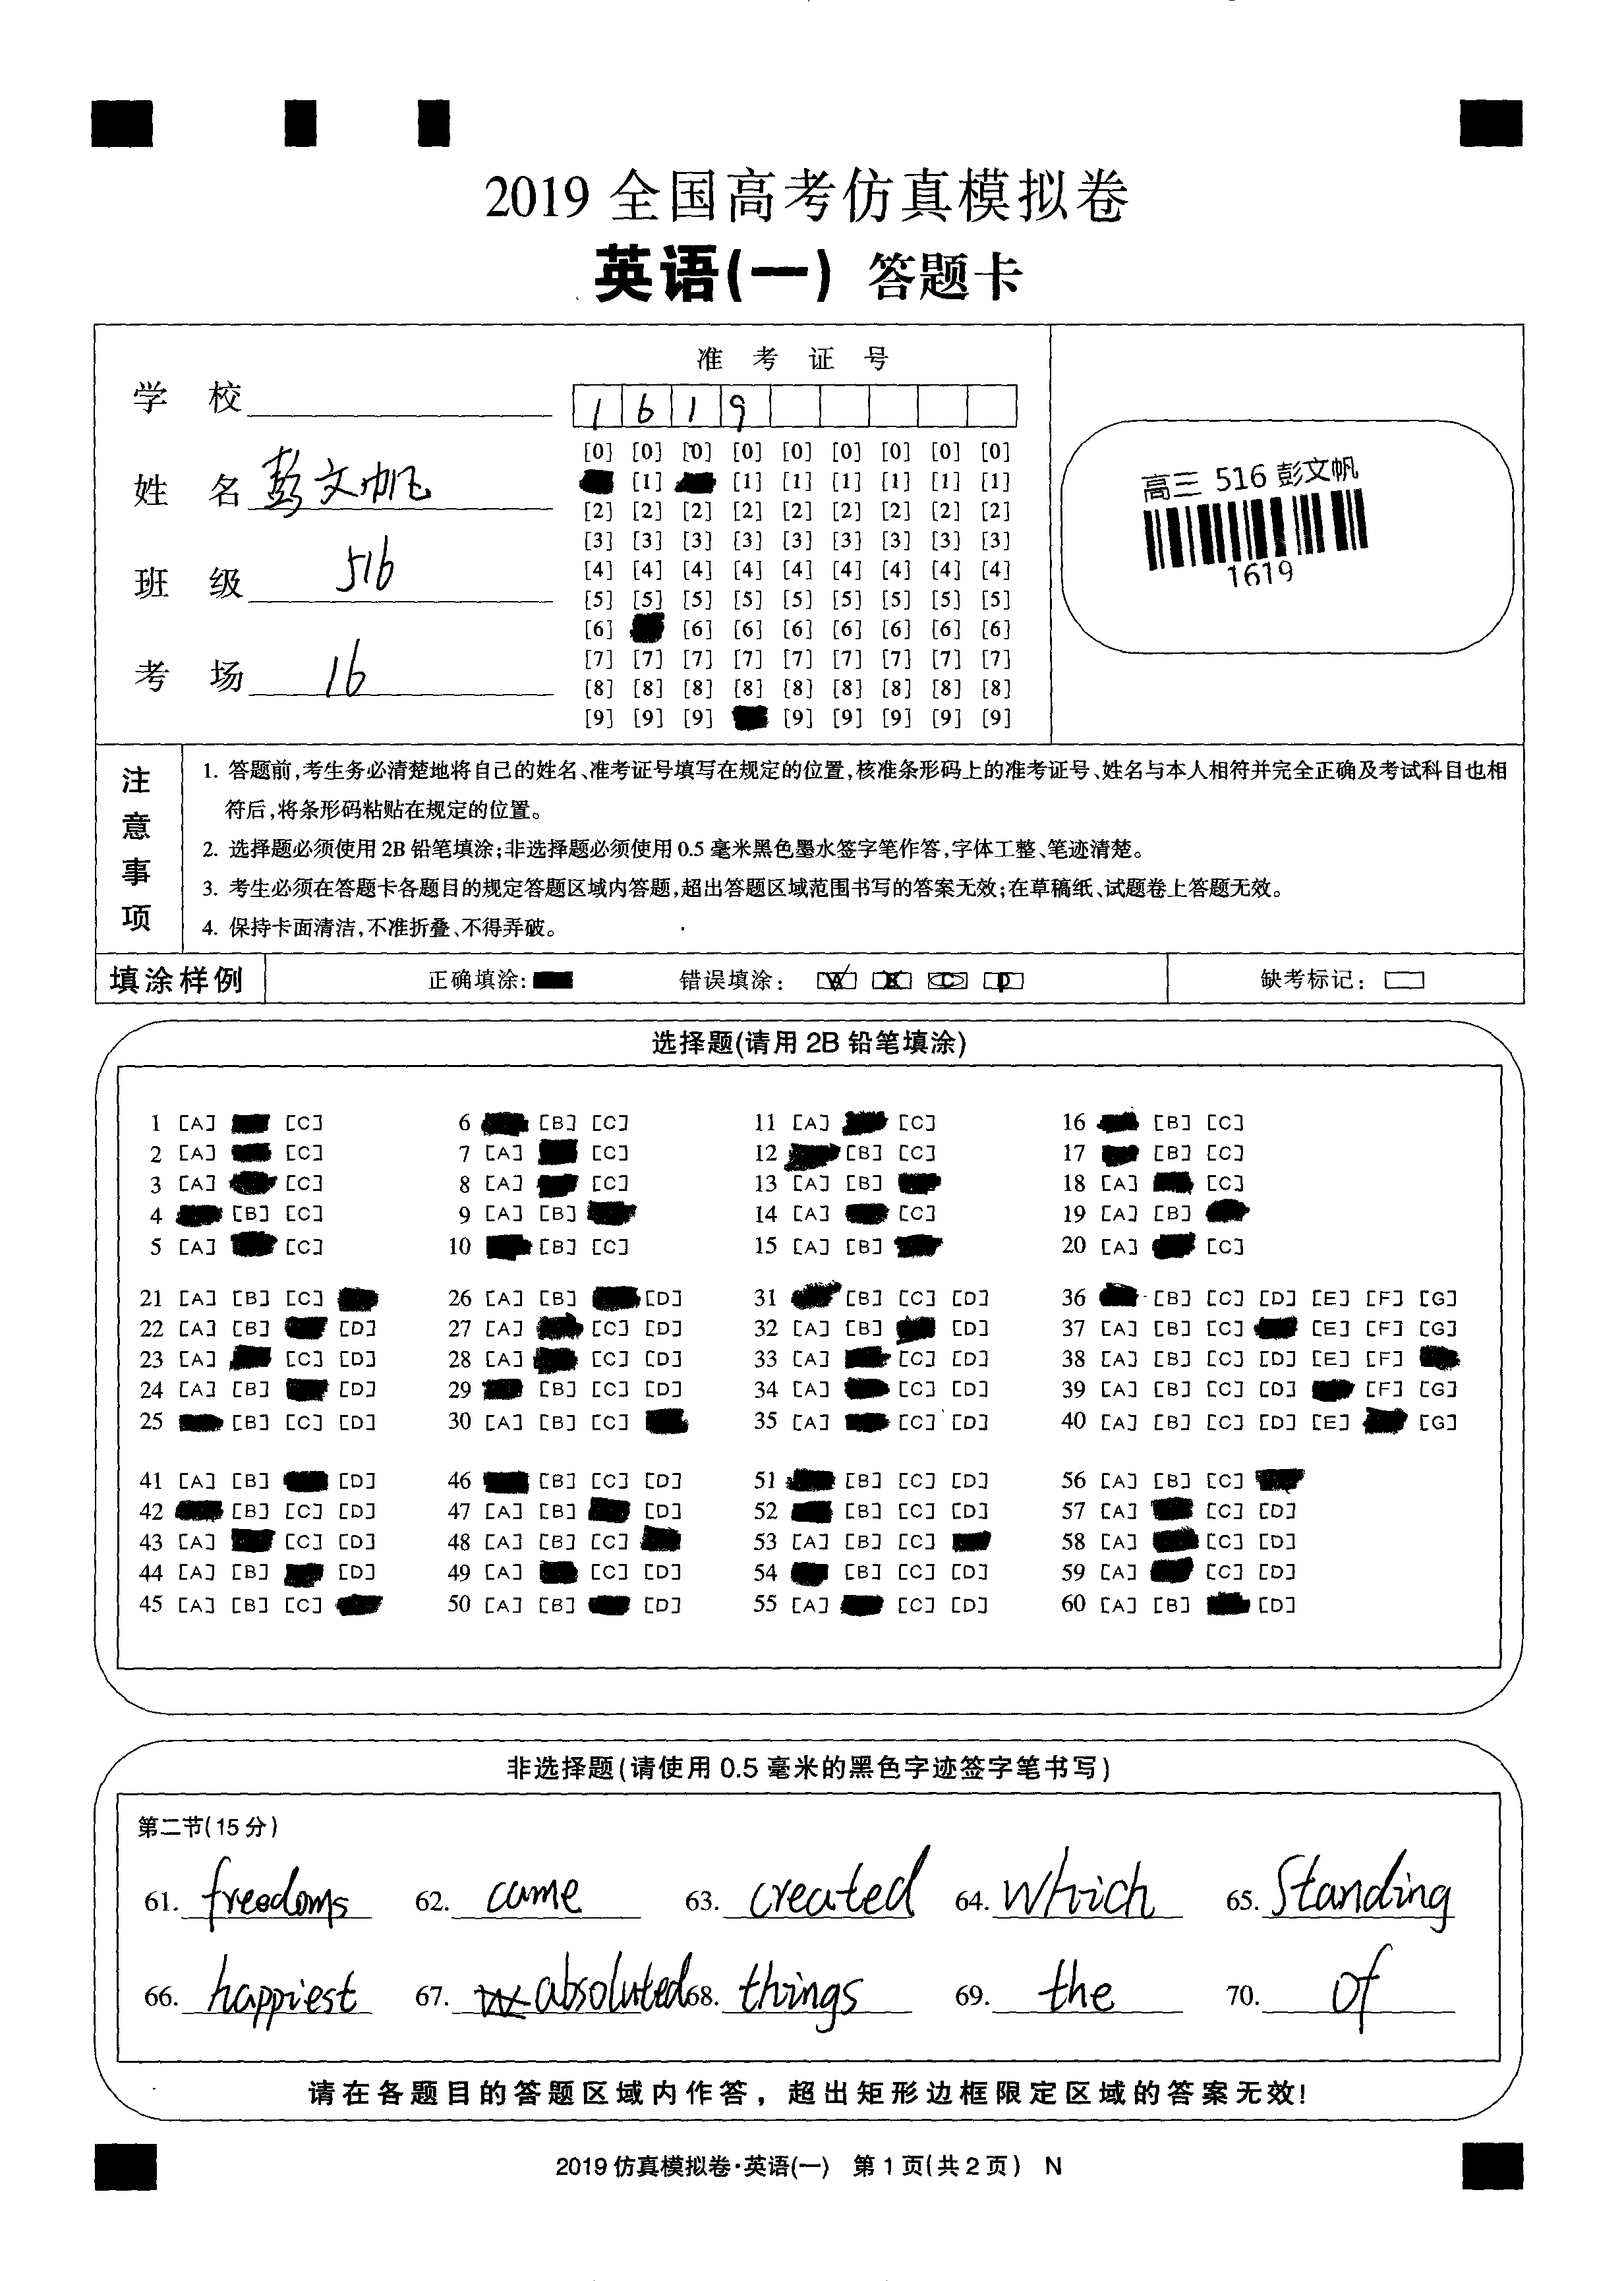 2019 全国高考仿真模拟卷
英语(一) 答题卡
准 考 证 号
学 校
1 6 1 9
姓 名 彭文帆
班 级 516
考 场 16
[0] [0] [0] [0] [0] [0] [0] [0] [0]
[1] [1] [1] [1] [1] [1] [1]
[2] [2] [2] [2] [2] [2] [2] [2] [2]
[3] [3] [3] [3] [3] [3] [3] [3] [3]
[4] [4] [4] [4] [4] [4] [4] [4] [4]
[5] [5] [5] [5] [5] [5] [5] [5] [5]
[6] [6] [6] [6] [6] [6] [6] [6]
[7] [7] [7] [7] [7] [7] [7] [7] [7]
[8] [8] [8] [8] [8] [8] [8] [8] [8]
[9] [9] [9] [9] [9] [9] [9] [9]
高三 516 彭文帆
1619
注意事项
1. 答题前,考生务必清楚地将自己的姓名、准考证号填写在规定的位置,核准条形码上的准考证号、姓名与本人相符并完全正确及考试科目也相
符后,将条形码粘贴在规定的位置。
2. 选择题必须使用 2B 铅笔填涂;非选择题必须使用 0.5 毫米黑色墨水签字笔作答,字体工整、笔迹清楚。
3. 考生必须在答题卡各题目的规定答题区域内答题,超出答题区域范围书写的答案无效;在草稿纸、试题卷上答题无效。
4. 保持卡面清洁,不准折叠、不得弄破。
填涂样例 正确填涂: 错误填涂: A B C D 缺考标记:
选择题(请用 2B 铅笔填涂)
1 [A] [C] 6 [B] [C] 11 [A] [C] 16 [B] [C]
2 [A] [C] 7 [A] [C] 12 [B] [C] 17 [B] [C]
3 [A] [C] 8 [A] [C] 13 [A] [B] 18 [A] [C]
4 [B] [C] 9 [A] [B] 14 [A] [C] 19 [A] [B]
5 [A] [C] 10 [B] [C] 15 [A] [B] 20 [A] [C]
21 [A] [B] [C] 26 [A] [B] [D] 31 [B] [C] [D] 36 [B] [C] [D] [E] [F] [G]
22 [A] [B] [D] 27 [A] [C] [D] 32 [A] [B] [D] 37 [A] [B] [C] [E] [F] [G]
23 [A] [C] [D] 28 [A] [C] [D] 33 [A] [C] [D] 38 [A] [B] [C] [D] [E] [F]
24 [A] [B] [D] 29 [B] [C] [D] 34 [A] [C] [D] 39 [A] [B] [C] [D] [F] [G]
25 [B] [C] [D] 30 [A] [B] [C] 35 [A] [C] [D] 40 [A] [B] [C] [D] [E] [G]
41 [A] [B] [D] 46 [B] [C] [D] 51 [B] [C] [D] 56 [A] [B] [C]
42 [B] [C] [D] 47 [A] [B] [D] 52 [B] [C] [D] 57 [A] [C] [D]
43 [A] [C] [D] 48 [A] [B] [C] 53 [A] [B] [C] 58 [A] [C] [D]
44 [A] [B] [D] 49 [A] [C] [D] 54 [B] [C] [D] 59 [A] [C] [D]
45 [A] [B] [C] 50 [A] [B] [D] 55 [A] [C] [D] 60 [A] [B] [D]
非选择题(请使用 0.5 毫米的黑色字迹签字笔书写)
第二节(15 分)
61. freedoms 62. came 63. created 64. which 65. Standing
66. happiest 67. absoluted 68. things 69. the 70. of
请在各题目的答题区域内作答，超出矩形边框限定区域的答案无效!
2019 仿真模拟卷·英语(一) 第 1 页(共 2 页) N